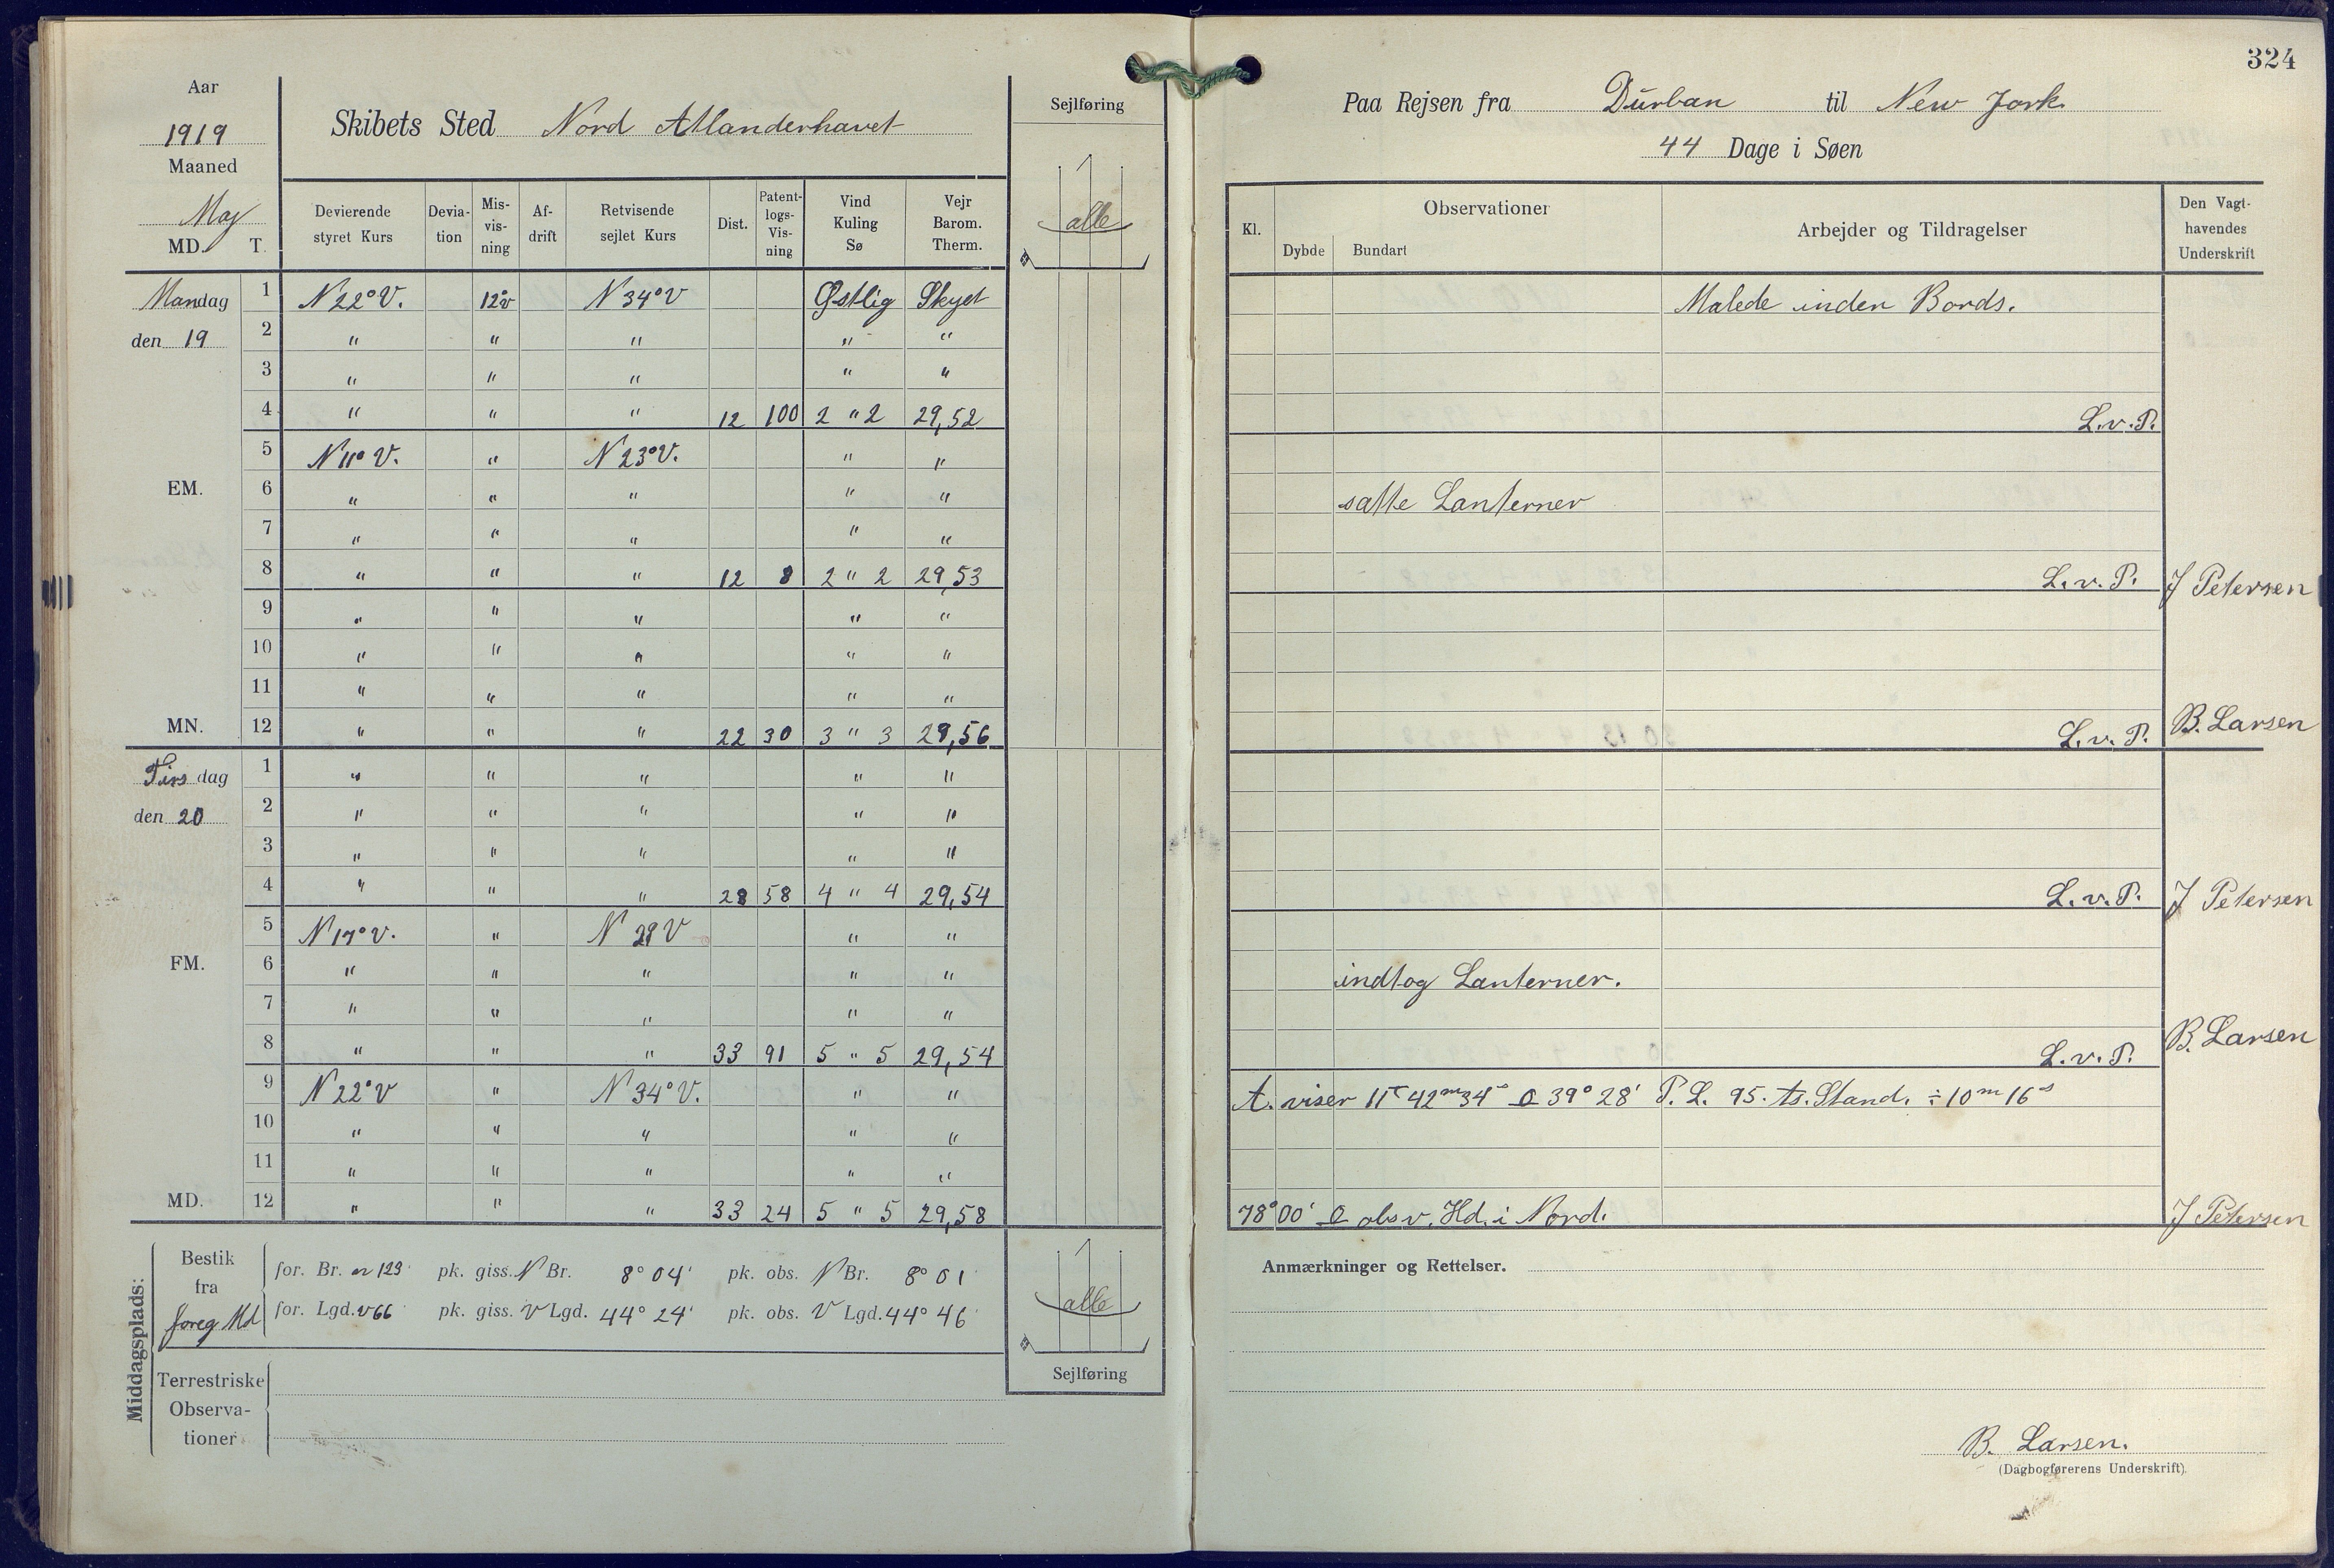 Aar
1919
Maaned
Maj
MD. T.
Skibets Sted Nord Atlanderhavet
Sejlføring
alle
Devierende styret Kurs | Devia-tion | Mis-vis-ning | Af-drift | Retvisende sejlet Kurs | Dist. | Patent-logs-Vis-ning | Vind Kuling Sø | Vejr Barom. Therm.
Mandag 1 N 22° V. 12°v N 34° V Østlig Skyet
den 19 2 " " " " "
3 " " " " "
4 " " " 12 100 2 " 2 29,52
5 N 11° V. " N 23° V. " "
EM. 6 " " " " "
7 " " " " "
8 " " " 12 8 2 " 2 29,53
9 " " " " "
10 " " " " "
11 " " " " "
MN. 12 " " " 22 30 3 " 3 29,56
Tirsdag 1 " " " " "
den 20 2 " " " " "
3 " " " " "
4 " " " 28 58 4 " 4 29,54
5 N 17° V. " N 29 V " "
FM. 6 " " " " "
7 " " " " "
8 " " " 33 91 5 " 5 29,54
9 N 22° V " N 34° V. " "
10 " " " " "
11 " " " " "
MD. 12 " " " 33 24 5 " 5 29,58
Middagsplads:
Bestik fra foreg Md
for. Br. n 123 pk. giss. N Br. 8° 04' pk. obs. N Br. 8° 01'
for. Lgd. v 66 pk. giss. V Lgd. 44° 24' pk. obs. V Lgd. 44° 46
Terrestriske
Observa-
tioner
alle
Sejlføring
324
Paa Rejsen fra Durban til New Jork.
44 Dage i Søen
Kl. | Observationer | Dybde | Bundart | Arbejder og Tildragelser | Den Vagt-havendes Underskrift
Malede inden Bords.
L.v.P.
satte Lanterner
L.v.P. J Petersen
L.v.P. B. Larsen
L.v.P. J Petersen
indtog Lanterner.
L.v.P. B. Larsen
A. viser 11ᵀ 42ᵐ 34ˢ ⊙ 39° 28' P. L. 95. Ts. Stand. ÷ 10ᵐ 16ˢ
78° 00' ⊙ obsv. Hd. i Nord. J Petersen
Anmærkninger og Rettelser.
B. Larsen.
(Dagbogførerens Underskrift)